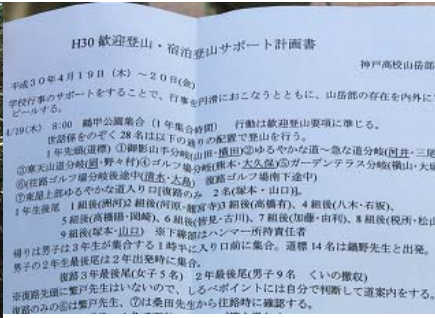 H30 歓迎登山・宿泊登山サポート計画書
神戸高校山岳部
平成30年4月19日(木)~20日(金)
学校行事のサポートをすることで、行事を円滑におこなうとともに、山岳部の存在を内外に
ピールする。
4/19(木) 8:00 鶴甲公園集合(1年集合時間) 行動は歓迎登山要項に準じる。
世話係をのぞく28名は以下の通りの配置で登山を行う。
1年生先頭(道標)①御影山手分岐(山田・横田)②ゆるやかな道~急な道分岐(河井・三尾
③寒天山道分岐(岡・野々村)④ゴルフ場分岐(熊本・大久保)⑤ガーデンテラス分岐(横山・大塚
⑥(往路ゴルフ場分岐途中(清水・大島) 復路ゴルフ場南下途中)
⑦東屋上部ゆるやかな道入り口[復路のみ 2名(塚本・山口)]。
1年生後尾 1組後(洲河)2組後(河原・龍宮寺)3組後(高橋有)、4組後(八木・石坂)、
5組後(高橋陽・岡崎)、6組後(皆見・古川)、7組後(加藤・由利)、8組後(税所・松山
9組後(塚本・山口) ※下線部はハンマー所持責任者
帰りは男子は3年生が集合する1時半に入り口前に集合。道標14名は鍋野先生と出発。
男子の2年生最後尾は2年出発時に集合。
復路3年最後尾(女子5名) 2年最後尾(男子9名 くいの撤収)
※復路先頭に繁戸先生はいないので、しるべポイントには自分で判断して道案内をする。
復路のみの⑥は繁戸先生、⑦は桑田先生から往路時に確認する。